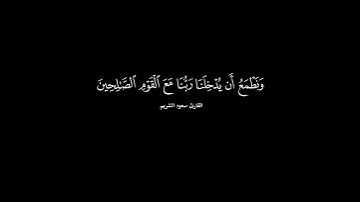 وَنَطْمَعُ أَن يُدْخِلَنَا رَبُّنَا مَعَ ٱلْقَوْمِ ٱلصَّـٰلِحِينَ
القارئ سعود الشريم